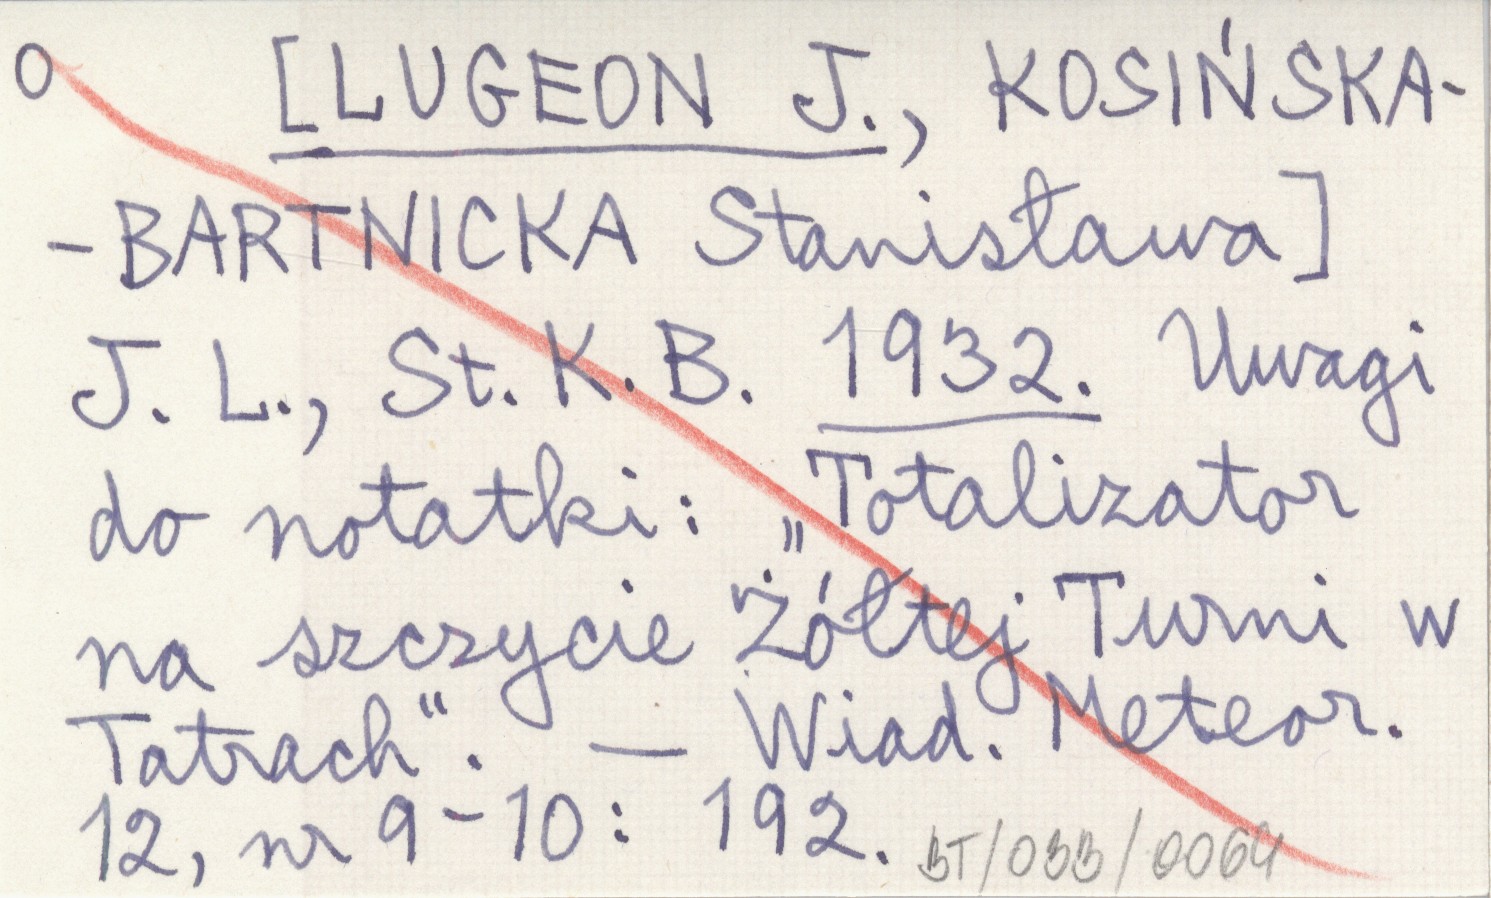 O [LUGEON J., KOSIŃSKA-
-BARTNICKA Stanisława]
J. L., St. K. B. 1932. Uwagi
do notatki: „Totalizator
na szczycie Żółtej Turni w
Tatrach". — Wiad. Meteor.
12, nr 9-10: 192.
BT/033/0064